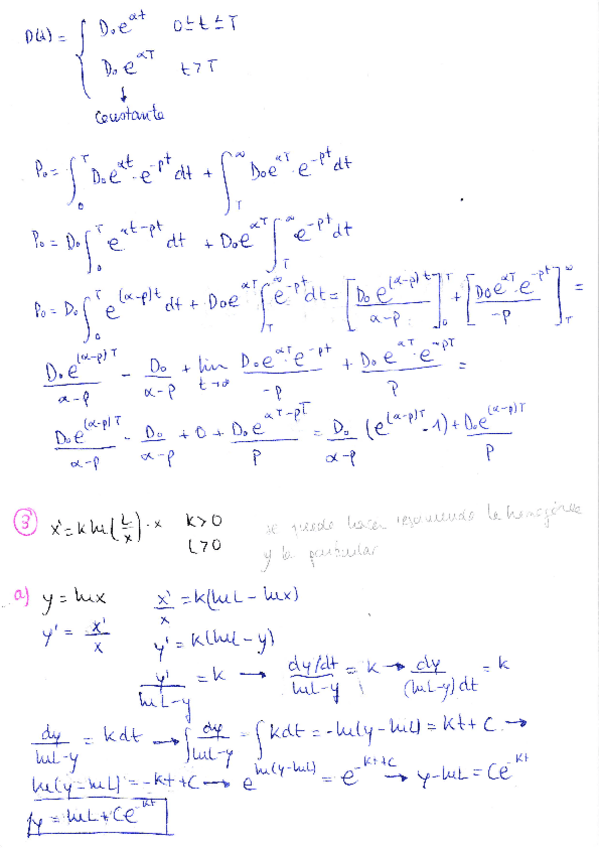 D(t) = { D₀e^{αt}   0 ≤ t ≤ T
D₀e^{αT}   t > T
↓
constante
P₀ = ∫₀^T D₀e^{αt}·e^{-pt} dt + ∫_T^∞ D₀e^{αT}·e^{-pt} dt
P₀ = D₀ ∫₀^T e^{αt-pt} dt + D₀e^{αT} ∫_T^∞ e^{-pt} dt
P₀ = D₀ ∫₀^T e^{(α-p)t} dt + D₀e^{αT} ∫_T^∞ e^{-pt} dt = [D₀e^{(α-p)t} / (α-p)]₀^T + [D₀e^{αT}·e^{-pt} / -p]_T^∞ =
D₀e^{(α-p)T} / (α-p) - D₀ / (α-p) + lim_{t→∞} D₀e^{αT}e^{-pt} / -p + D₀e^{αT}·e^{-pT} / p =
D₀e^{(α-p)T} / (α-p) - D₀ / (α-p) + 0 + D₀e^{αT-pT} / p = D₀ / (α-p) (e^{(α-p)T} - 1) + D₀e^{(α-p)T} / p
③ x' = k ln(L/x)·x   k>0   se puede hacer resolviendo la homogénea
L>0   y la particular
a) y = lnx   x'/x = k(lnL - lnx)
y' = x'/x   y' = k(lnL - y)
y' / (lnL-y) = k → (dy/dt) / (lnL-y) = k → dy / (lnL-y)dt = k
dy / (lnL-y) = kdt → ∫ dy / (lnL-y) = ∫ kdt = -ln(y-lnL) = kt + C →
ln(y-lnL) = -kt + C → e^{ln(y-lnL)} = e^{-kt+C} → y-lnL = Ce^{-kt}
y = lnL + Ce^{-kt}